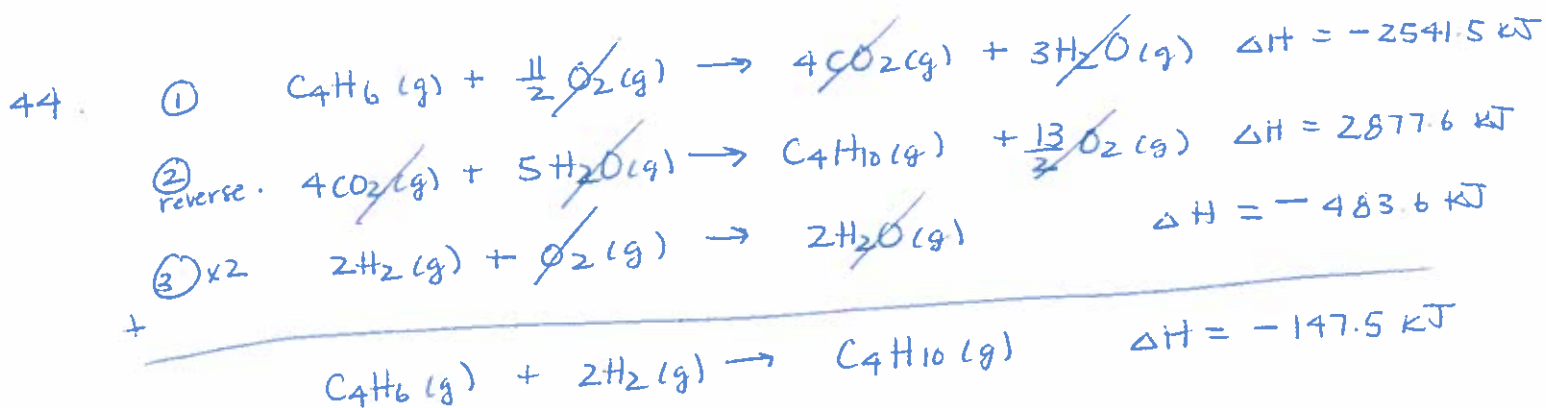 44. ① C₄H₆(g) + 11/2 O₂(g) → 4CO₂(g) + 3H₂O(g) ΔH = -2541.5 kJ
② reverse. 4CO₂(g) + 5H₂O(g) → C₄H₁₀(g) + 13/2 O₂(g) ΔH = 2877.6 kJ
③ x2 2H₂(g) + O₂(g) → 2H₂O(g) ΔH = -483.6 kJ
+
C₄H₆(g) + 2H₂(g) → C₄H₁₀(g) ΔH = -147.5 kJ